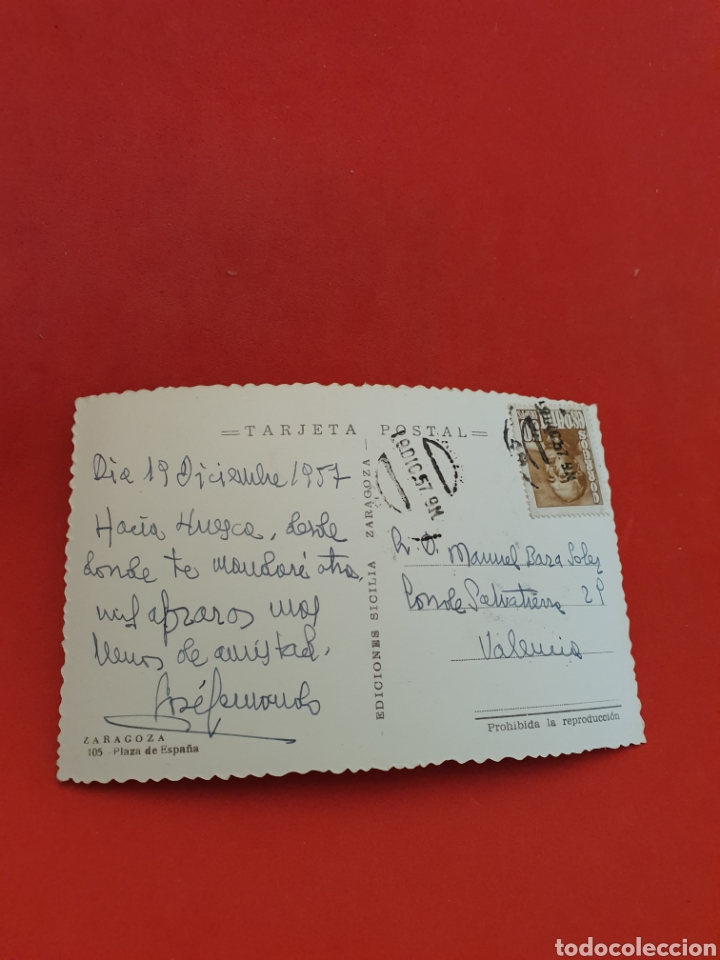 =TARJETA POSTAL=
Dia 19 Diciembre 1957
Hacia Huesca, desde
donde te mandaré otra,
van abrazos muy
llenos de amistad.
José Fernando
ZARAGOZA
105 - Plaza de España
EDICIONES SICILIA ZARAGOZA
19 DIC 57 9M
CORREOS
Sr. D. Manuel Baza
Conde Salvatierra 29
Valencia
Prohibida la reproducción
todocoleccion